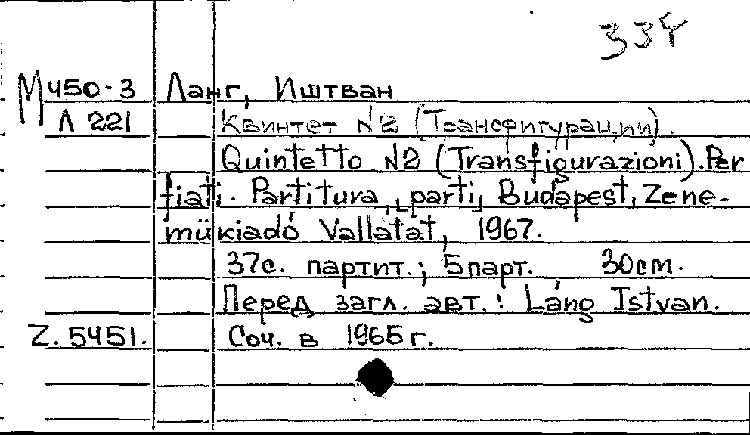 334
М 450-3 Ланг, Иштван
Л 221 Квинтет №2 (Трансфигурации).
Quintetto №2 (Transfigurazioni). Per
fiati. Partitura, parti, Budapest, Zene-
mükiadó Vallatat, 1967.
37с. партит.; 5парт. 30cm.
Перед загл. авт.: Láng Istvan.
Z. 5451. Соч. в 1965г.